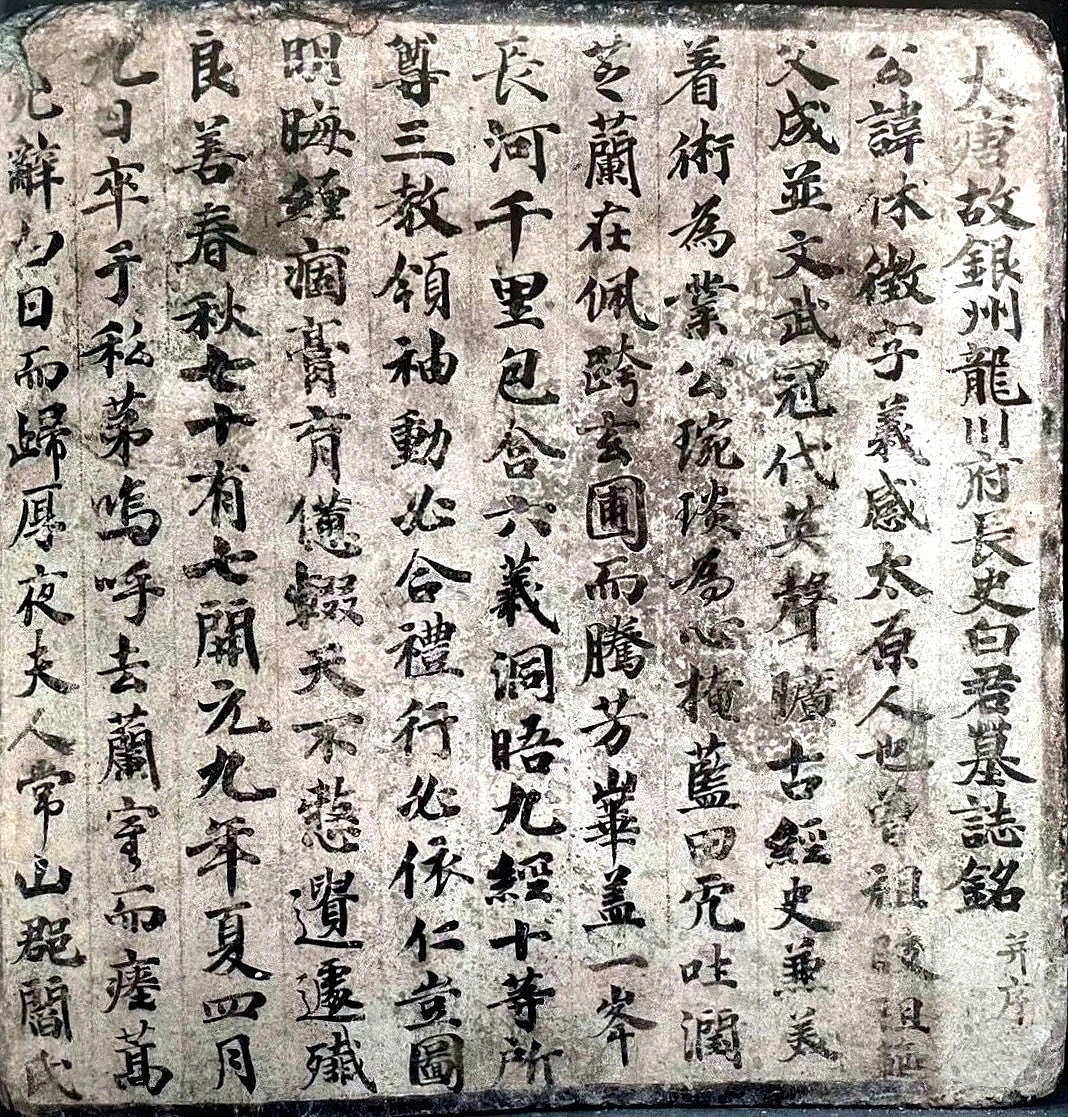 大唐故銀州龍川府長史白君墓誌銘 并序
公諱休徵字義感太原人也曾祖陵祖
父成並文武冠代英聲曠古經史兼美
着術為業公琬琰為心掩藍田而吐潤
芝蘭在佩跨玄圃而騰芳崋盖一岑
長河千里包含六義洞晤九經十等所
尊三教領袖動必合禮行必依仁豈圖
明晦纏痼膏肓僊輟天不憗遺遽殲
良善春秋七十有七開元九年夏四月
九日卒于私苐嗚呼去蘭室而瘞萬
九辭白日而歸厚夜夫人常山郡閻氏